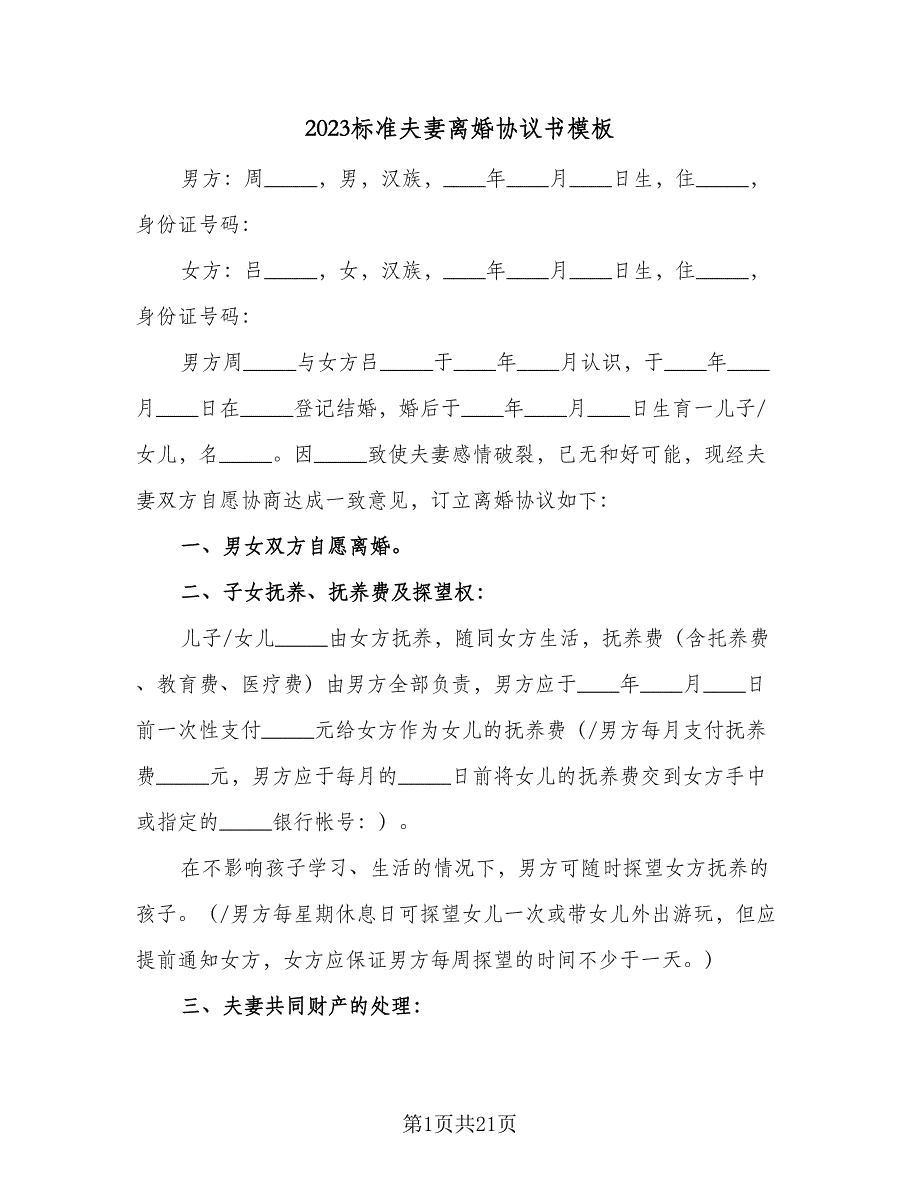 2023标准夫妻离婚协议书模板
男方：周_____，男，汉族，____年____月____日生，住_____，
身份证号码：
女方：吕_____，女，汉族，____年____月____日生，住_____，
身份证号码：
男方周_____与女方吕_____于____年____月认识，于____年____
月____日在_____登记结婚，婚后于____年____月____日生育一儿子/
女儿，名_____。因_____致使夫妻感情破裂，已无和好可能，现经夫
妻双方自愿协商达成一致意见，订立离婚协议如下：
一、男女双方自愿离婚。
二、子女抚养、抚养费及探望权：
儿子/女儿_____由女方抚养，随同女方生活，抚养费（含托养费
、教育费、医疗费）由男方全部负责，男方应于____年____月____日
前一次性支付_____元给女方作为女儿的抚养费（/男方每月支付抚养
费_____元，男方应于每月的_____日前将女儿的抚养费交到女方手中
或指定的_____银行帐号：）。
在不影响孩子学习、生活的情况下，男方可随时探望女方抚养的
孩子。（/男方每星期休息日可探望女儿一次或带女儿外出游玩，但应
提前通知女方，女方应保证男方每周探望的时间不少于一天。）
三、夫妻共同财产的处理：
第1页共21页